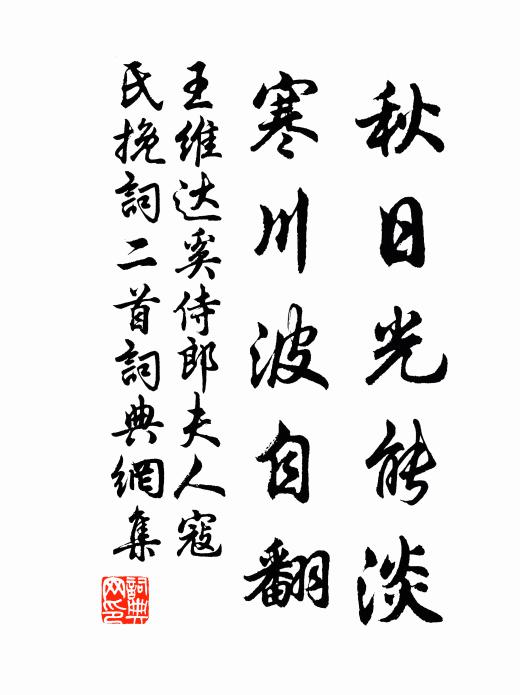 秋日光能淡
寒川波自翻
王维达奚侍郎夫人寇
氏挽詞二首詞典網集
詞典网印